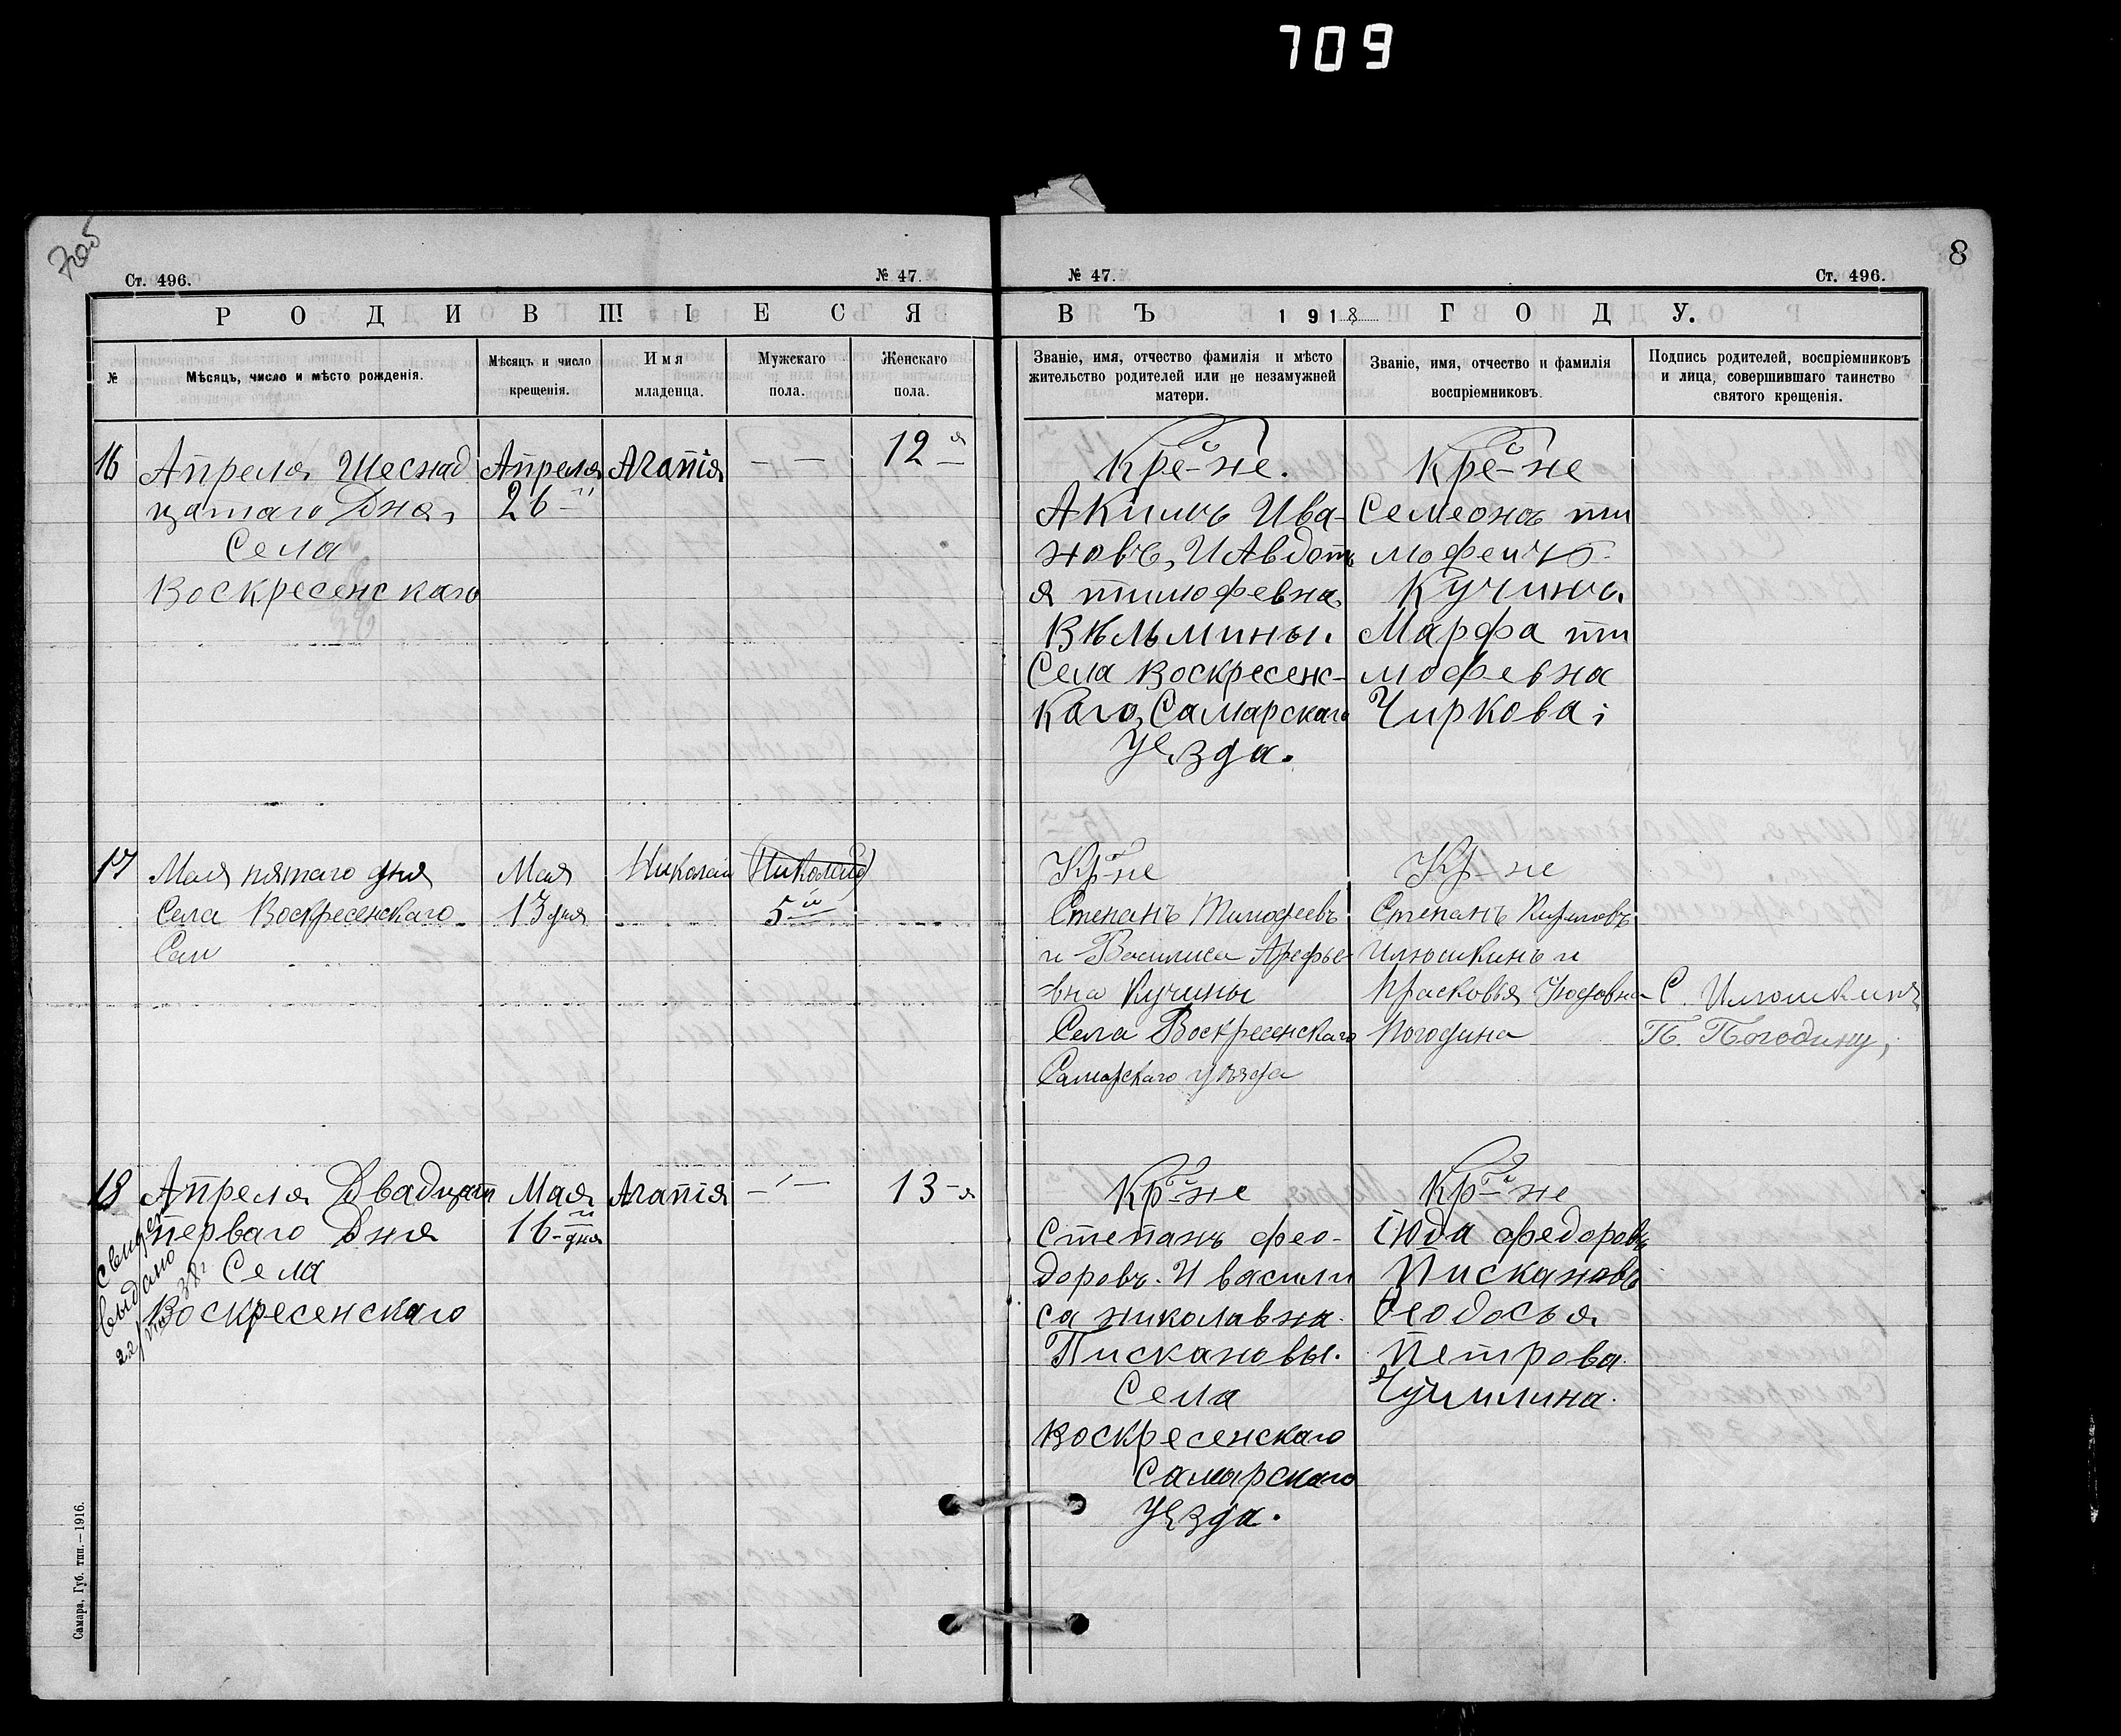 709
Ст. 496.
№ 47.
РОДИВШІЕСЯ
№
Мѣсяцъ, число и мѣсто рожденія.
Мѣсяцъ и число
крещенія.
Имя
младенца.
Мужскаго
пола.
Женскаго
пола.
16
Апреля Шеснад
цатаго Дня,
Села
Воскресенскаго
Апреля
26-й
Агапія
— —
12 я
17
Мая пятаго дня
Села Воскресенскаго
Сам
Мая
13 дня
Николай
Николай
5 й
18
Апреля Двадцат
перваго Дня
Села
Воскресенскаго
Мая
16-й дня
Агапія
— —
13-я
выдано
Самара, Губ. тип.—1916.
8
№ 47.
Ст. 496.
ВЪ 1918 ГОДУ.
Званіе, имя, отчество фамилія и мѣсто
жительство родителей или не незамужней
матери.
Званіе, имя, отчество и фамилія
воспріемниковъ.
Подпись родителей, воспріемниковъ
и лица, совершившаго таинство
святого крещенія.
Кре-не.
Акимъ Ива-
новъ, И Авдоть
я тимофевна
Вѣльмины.
Села Воскресенс-
каго, Самарскаго
Уезда.
Кре-не
Семеонъ ти
мофеичъ
Кучинъ.
Марфа ти
мофевна
Чиркова;
Кр-не
Степанъ Тимофеевъ
и Василиса Арефье-
вна Кучины
Села Воскресенскаго
Самарскаго уѣзда
Кр-не
Степанъ Кириловъ
Илюшкинъ и
Прасковья
Погодина
С. Илюшкинъ
П. Погодину,
Кр-не
Степанъ фео-
доровъ. И васили
са николавна.
Пискановы.
Села
Воскресенскаго
Самарскаго
Уезда.
Кр-не
Іюда федоровъ
Пискановъ
Феодосья
Петрова